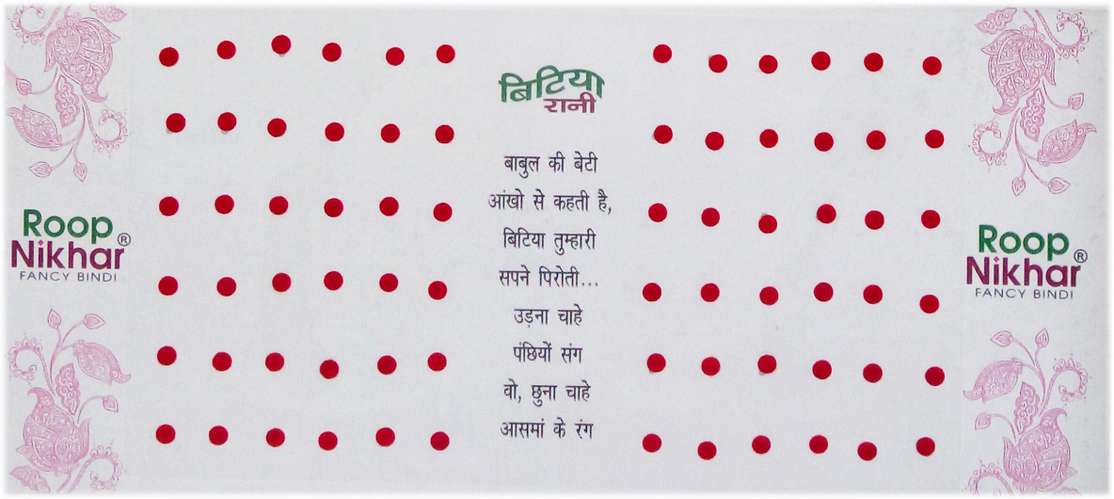 Roop
Nikhar®
FANCY BINDI
बिटिया
रानी
बाबुल की बेटी
आंखो से कहती है,
बिटिया तुम्हारी
सपने पिरोती...
उड़ना चाहे
पंछियों संग
वो, छुना चाहे
आसमां के रंग
Roop
Nikhar®
FANCY BINDI